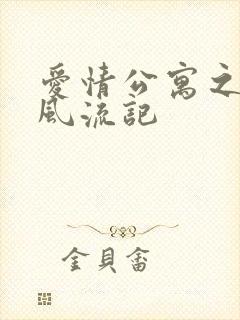 愛情公寓之
風流記
金貝畬